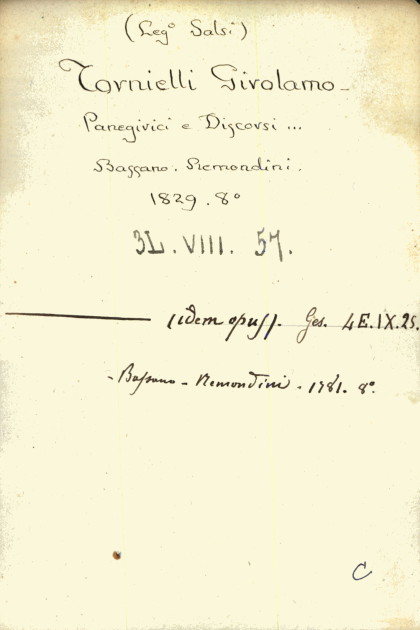 (Leg° Salsi)
Tornielli Girolamo -
Panegirici e Discorsi ...
Bassano. Remondini.
1829. 8°
3L. VIII. 57.
(idem opus). Ges. 4E.IX.25.
- Bassano - Remondini - 1781. 8°.
C